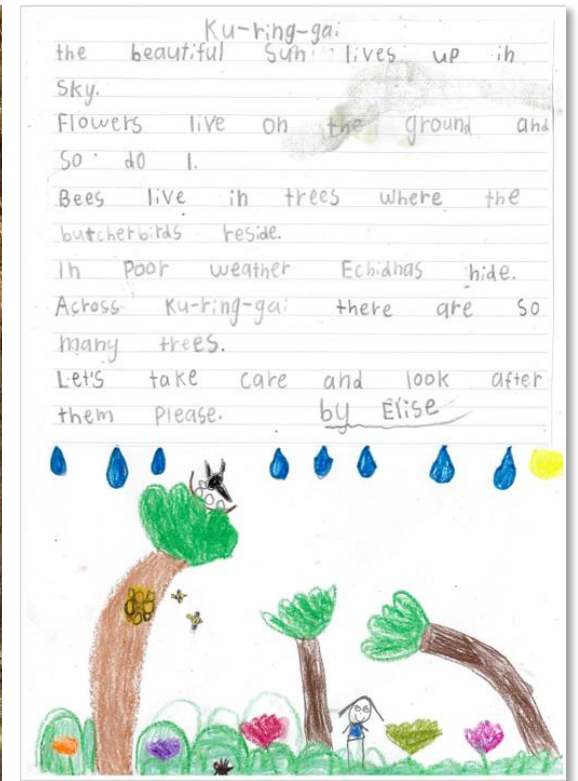 Ku-ring-gai
the beautiful Sun lives up in
Sky.
Flowers live on the ground and
So do I.
Bees live in trees where the
butcherbirds reside.
In Poor weather Echidnas hide.
Across Ku-ring-gai there are so
many trees.
Let's take care and look after
them Please. by Elise